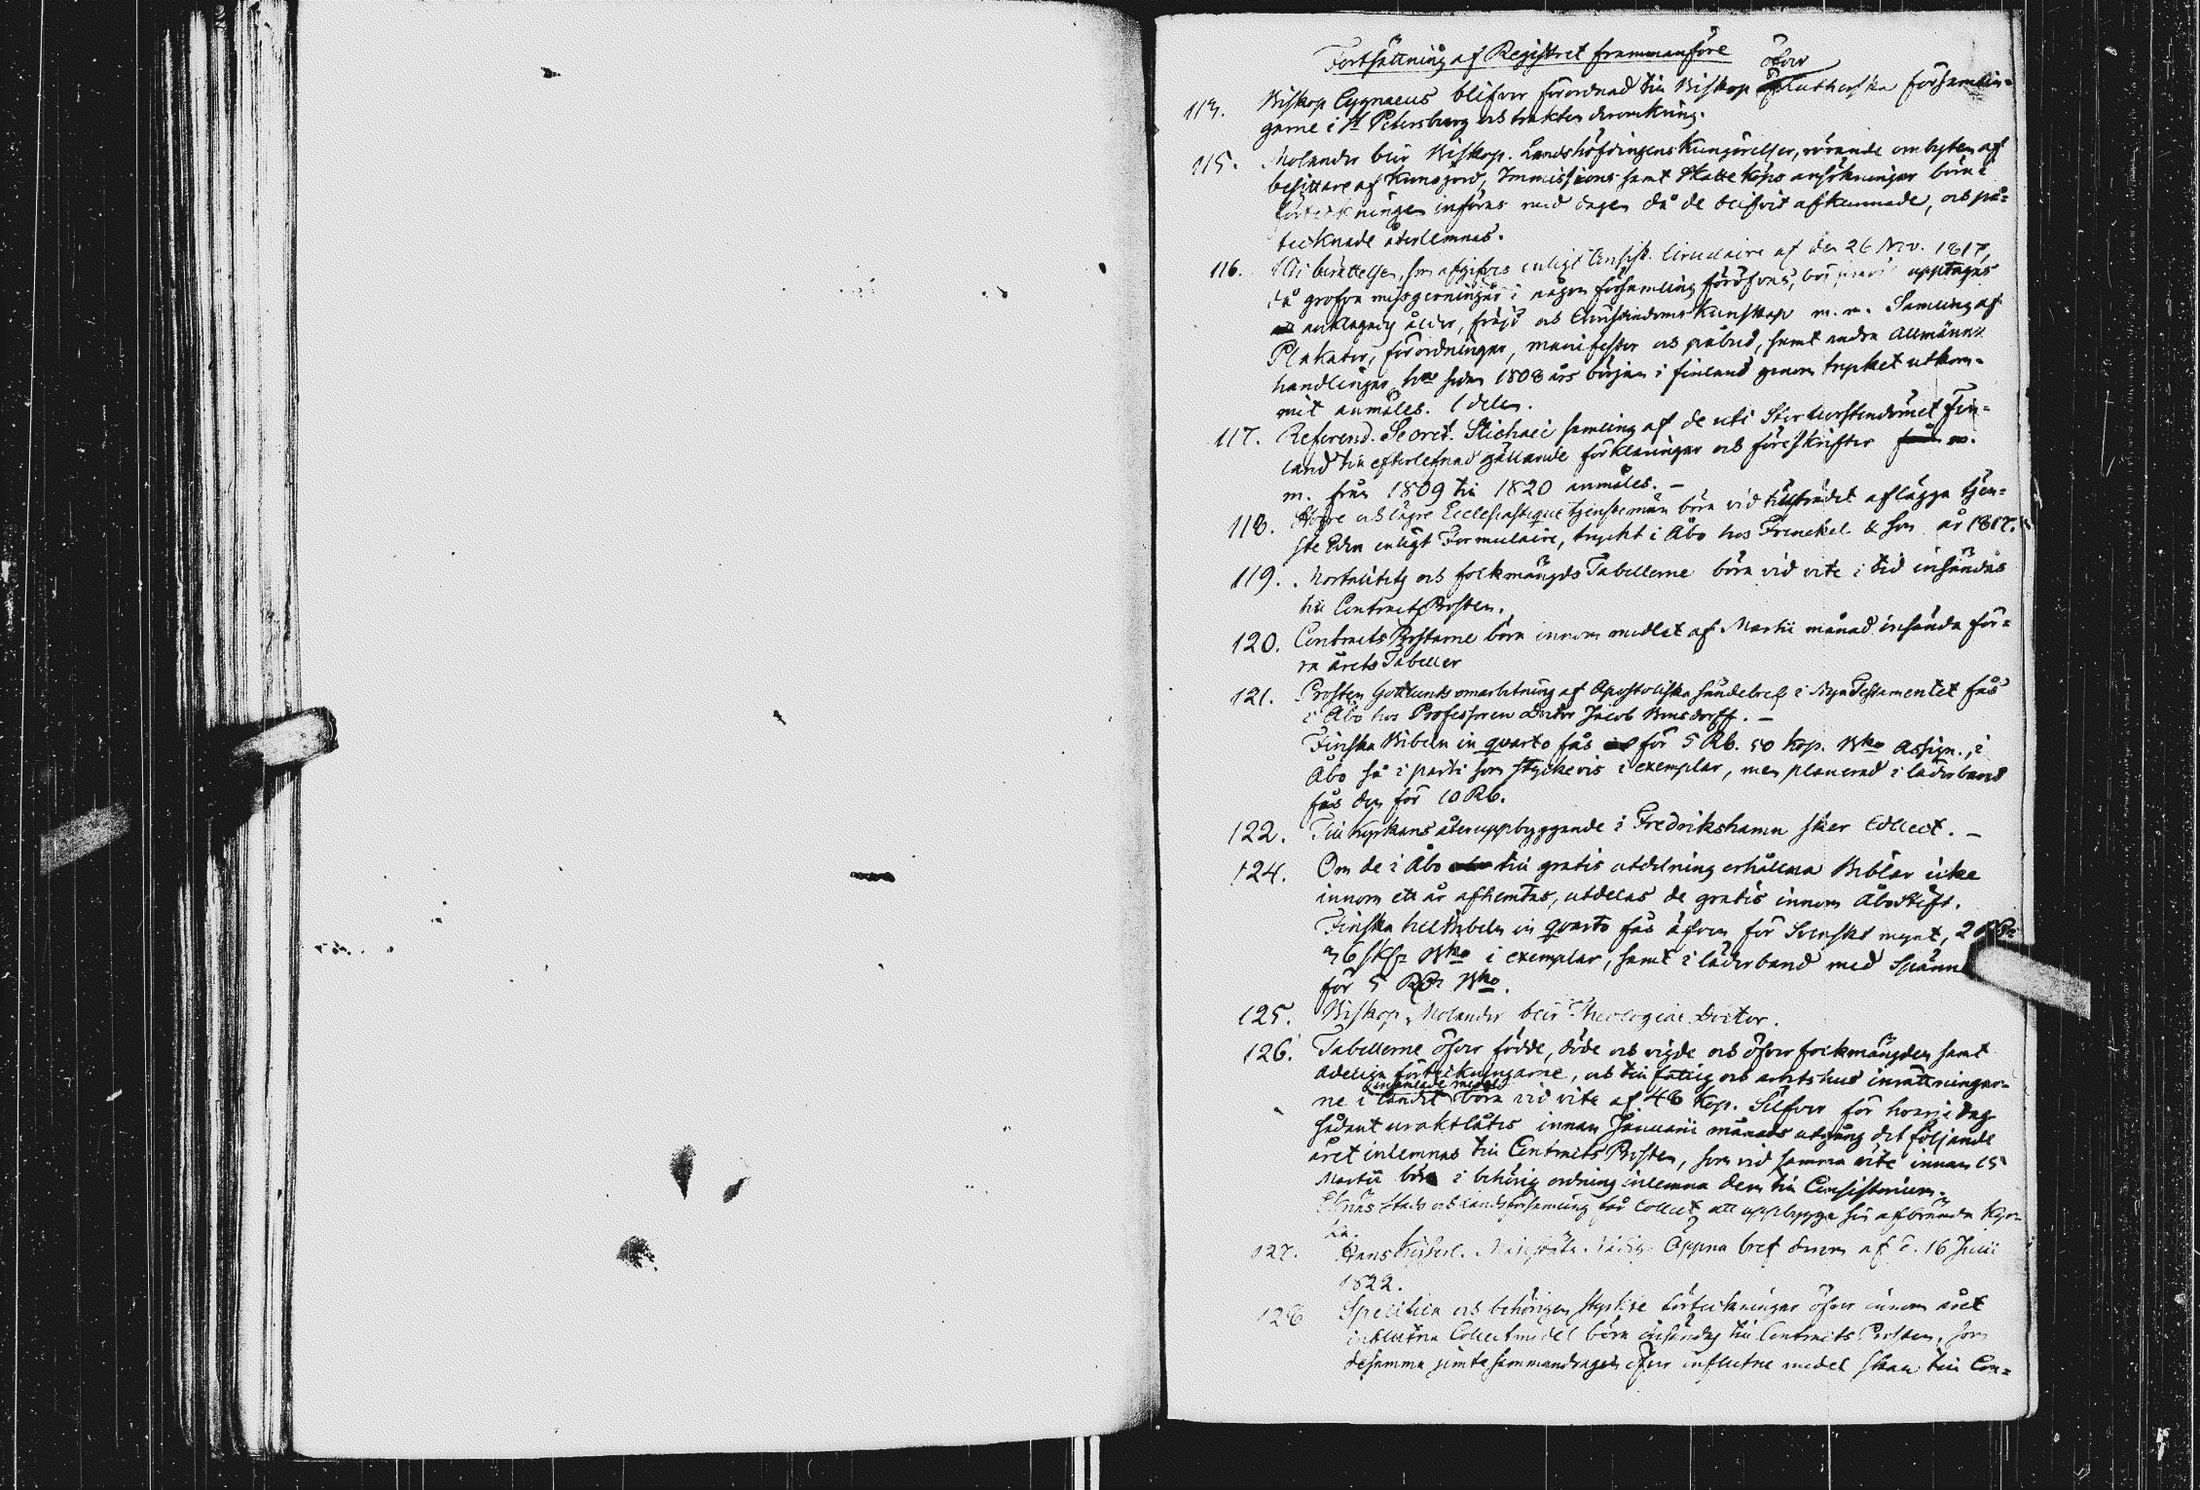 Fortsättning af Registret frammanföre
öfver
114. Biskop Cygnaeus blifver förordnad till Biskop Lutherska församlin-
garne i St Petersburg och trakten deromkring.
115. Molander blir Biskop. Landshöfdingens Kungörelser, rörande ombyten af
besittare af Kronojord, Immissions samt Skatteköps ansökningar böra i
förteckningen införas med dagen då de blifvit afkunnade, och på-
tecknade återlemnas.
116. Uti berättelsen, som afgifves enligt Consist. Circulaire af den 26 Nov. 1817,
då grofva missgerningar i någon församling föröfvas, bör upptagas
anklagades ålder, fräjd och Christendoms Kunskap m.m. Samling af
Plakater, förordningar, manifester och påbud, samt andra Allmänna
handlingar, hvar sedan 1808 års början i Finland genom trycket utkom-
mit anmäles. 1 delen.
117. Referend. Secret. Stichaei samling af de uti Storfurstendömet Fin-
land till efterlefnad gällande förklaringar och föreskrifter m.
m. från 1809 till 1820 anmäles. —
118. Högre och lägre Ecclesiastique tjenstemän böra vid tillträdet aflägga tjen-
ste Eden enligt Formulaire, tryckt i Åbo hos Frenckel & Son år 1817.
119. Mortalitets och folkmängds Tabellerne böra vid vite i tid insändas
till Contracts Prosten.
120. Contracts Prostarne böra innom medlet af Martii månad insända för-
ra årets Tabeller
121. Prosten Gottlunds omarbetning af Apostoliska Sändebref i Nya Testamentet fås
i Åbo hos Professoren Doctor Jacob Bonsdorff. —
Finska Bibeln in quarto fås för 5 Rb. 50 kop. Bko Assign., i
Åbo så i parti som styckevis i exemplar, men planerad i läderband
fås den för 10 Rb.
122. Till Kyrkans återuppbyggande i Fredrikshamn sker Collect. —
124. Om de i Åbo till gratis utdelning erhållna Biblar icke
innom ett år afhemtas, utdelas de gratis innom Åbo Stift.
Finska hel Bibeln in quarto fås äfven för Svenskt mynt, 2 RDr
36 sk Bko i exemplar, samt i läderband med Spänn
för 5 RDr Bko.
125. Biskop Molander blir Theologiae Doctor.
126. Tabellerne öfver födde, döde och vigde och öfver folkmängden samt
Adeliga förteckningarne, och till fattig och arbetshus inrättningar-
insamlade medel
ne i landet böra vid vite af 48 Kop. Silfver för hvarje dag
sådant uraktlåtes innan Januarii månads utgång det följande
året inlemnas till Contracts Prosten, som vid samma vite innan 15
Martii böra i behörig ordning inlemna dem till Consistorium.
Ekenäs Stads och Landsförsamling får Collect att uppbygga sin afbrända Kyr-
ka.
127. Hans Kejserl. Majestäts Nådiga Öppna bref af d. 16 Julii
1822.
128 Specifika och behörigen styrkte förteckningar öfver innom året
influtna Collectmedel böra insändas till Contracts Prosten, som
desamma jemte sammandragen öfver influtne medel skall till Con-